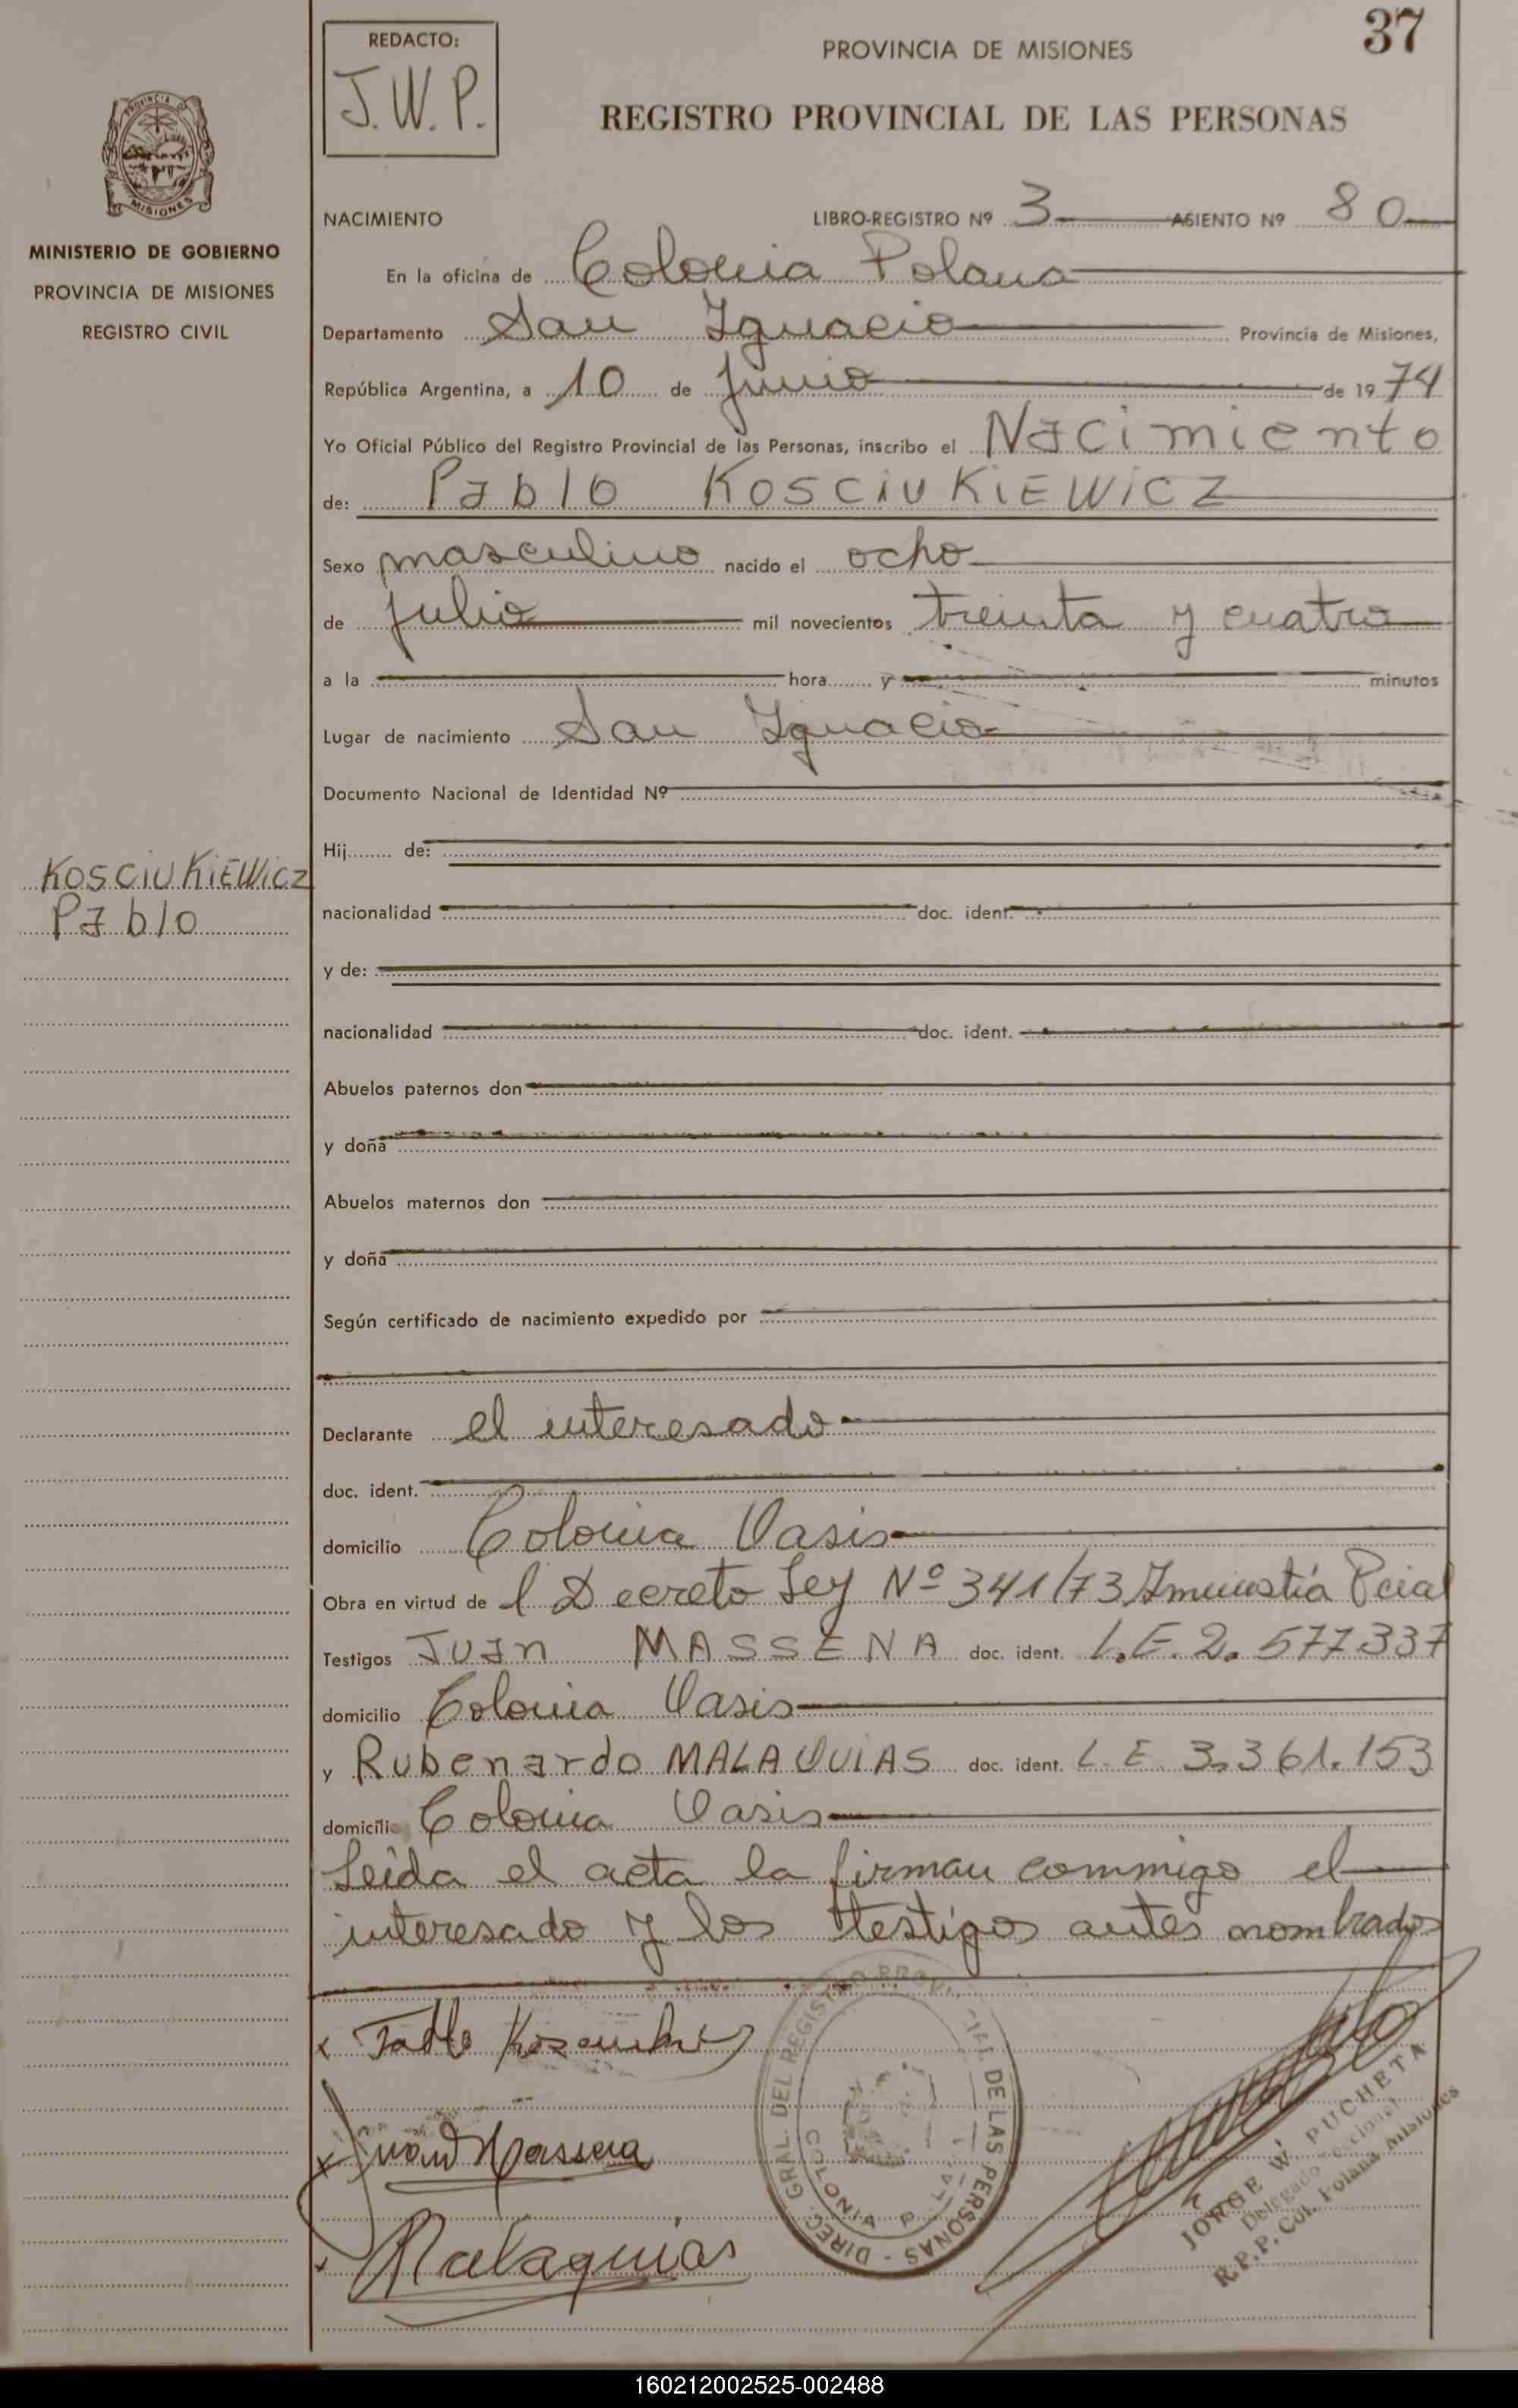 37
REDACTO:
J.W.P.
PROVINCIA DE MISIONES
REGISTRO PROVINCIAL DE LAS PERSONAS
MISIONES
MINISTERIO DE GOBIERNO
PROVINCIA DE MISIONES
REGISTRO CIVIL
NACIMIENTO LIBRO-REGISTRO Nº 3 ASIENTO Nº 80
En la oficina de Colonia Polana
Departamento San Ignacio Provincia de Misiones,
República Argentina, a 10 de junio de 1974
Yo Oficial Público del Registro Provincial de las Personas, inscribo el Nacimiento
de: Pablo KOSCIUKIEWICZ
Sexo masculino nacido el ocho
de julio mil novecientos treinta y cuatro
a la hora y minutos
Lugar de nacimiento San Ignacio
Documento Nacional de Identidad Nº
Hij de:
KOSCIUKIEWICZ
Pablo
nacionalidad doc. ident.
y de:
nacionalidad doc. ident.
Abuelos paternos don
y doña
Abuelos maternos don
y doña
Según certificado de nacimiento expedido por
Declarante el interesado
doc. ident.
domicilio Colonia Oasis
Obra en virtud de l Decreto Ley Nº 341/73 Amnistía Pcial
Testigos Juan MASSENA doc. ident. L.E. 2.577337
domicilio Colonia Oasis
y Rubenardo MALAQUIAS doc. ident. L.E. 3.361.153
domicilio Colonia Oasis
Leída el acta la firman commigo el
interesado y los testigos antes nombrados
Juan Massena
Malaquias
DIREC. GRAL. DEL REGISTRO PROV. DE LAS PERSONAS
COLONIA
JORGE W. PUCHETA
Delegado Seccional
R.P.P. Col. Polana Misiones
160212002525-002488